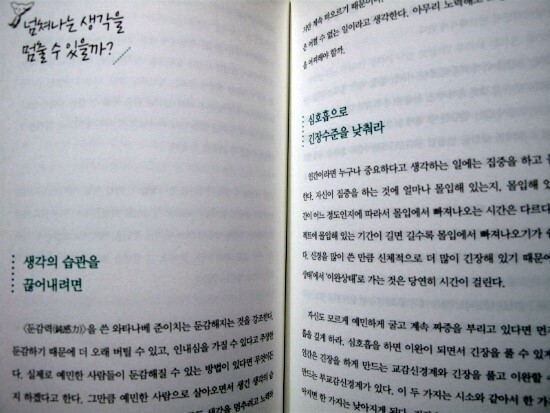 넘쳐나는 생각을
멈출 수 있을까?
생각의 습관을
끊어내려면
《둔감력(鈍感力)》을 쓴 와타나베 준이치는 둔감해지는 것을 강조한다.
둔감하기 때문에 더 오래 버틸 수 있고, 인내심을 가질 수 있다고 주장한
다. 실제로 예민한 사람들이 둔감해질 수 있는 방법이 있다면 무엇이든
지 하겠다고 한다. 그만큼 예민한 사람으로 살아오면서 생긴 생각의 습
생각을 멈추려고 노력하
지만 계속 떠오르기 때문이다.
은 어쩔 수 없는 일이라고 생각한다. 아무리 노력해
을 어찌해야 할까.
심호흡으로
긴장수준을 낮춰라
인간이라면 누구나 중요하다고 생각하는 일에는 집중을 하고
한다. 자신이 집중을 하는 것에 얼마나 몰입해 있는지, 몰입해 있
간이 어느 정도인지에 따라서 몰입에서 빠져나오는 시간은 다르다.
젝트에 몰입해 있는 기간이 길면 길수록 몰입에서 빠져나오기가
다. 신경을 많이 쓴 만큼 신체적으로 더 많이 긴장해 있기 때문에
상태'에서 '이완상태'로 가는 것은 당연히 시간이 걸린다.
자신도 모르게 예민하게 굴고 계속 짜증을 부리고 있다면 먼저
흡을 길게 하라. 심호흡을 하면 이완이 되면서 긴장을 풀 수 있
인간은 긴장을 하게 만드는 교감신경계와 긴장을 풀고 이완할
만드는 부교감신경계가 있다. 이 두 가지는 시소와 같아서 한
면 다른 한 가지는 낮아지게 된다.